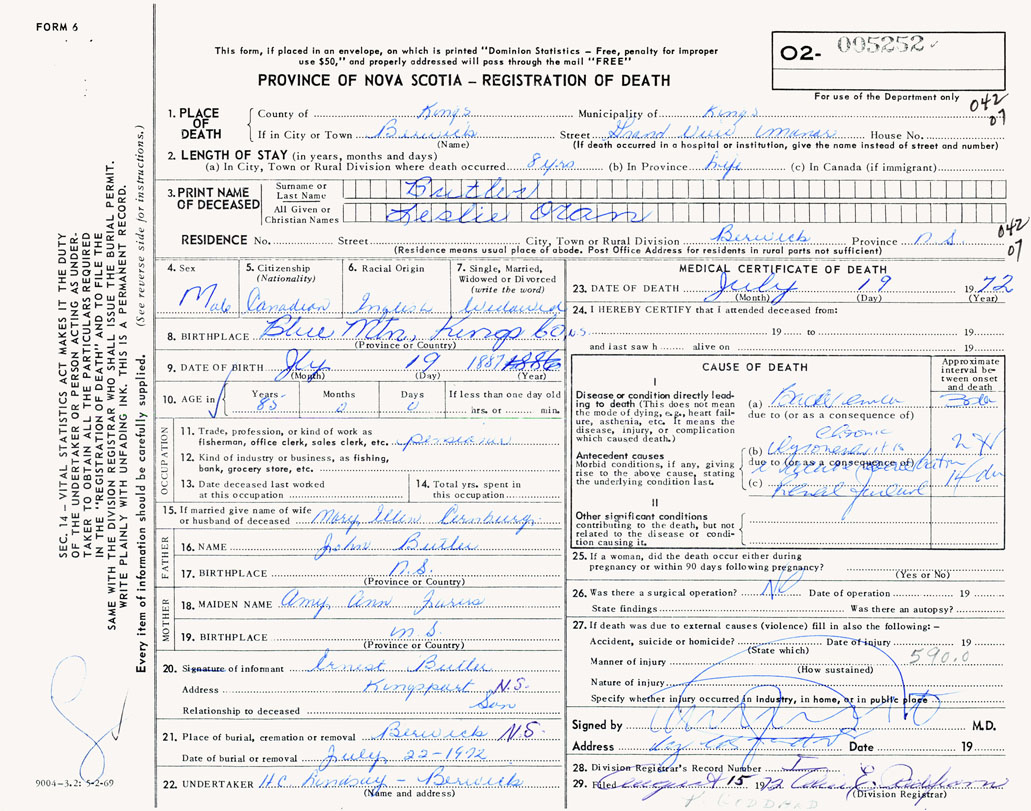 FORM 6
This form, if placed in an envelope, on which is printed "Dominion Statistics – Free, penalty for improper
use $50," and properly addressed will pass through the mail "FREE"
PROVINCE OF NOVA SCOTIA – REGISTRATION OF DEATH
02- 005252
For use of the Department only
042
07
1. PLACE OF DEATH
County of Kings Municipality of Kings
If in City or Town Berwick Street Grand View Manor House No.
(Name) (If death occurred in a hospital or institution, give the name instead of street and number)
2. LENGTH OF STAY (in years, months and days)
(a) In City, Town or Rural Division where death occurred 8 yrs (b) In Province life (c) In Canada (if immigrant)
3. PRINT NAME OF DECEASED
Surname or Last Name Butler
All Given or Christian Names Leslie Oram
042
07
RESIDENCE No. Street City, Town or Rural Division Berwick Province N.S.
(Residence means usual place of abode. Post Office Address for residents in rural parts not sufficient)
4. Sex Male
5. Citizenship (Nationality) Canadian
6. Racial Origin English
7. Single, Married, Widowed or Divorced (write the word) Widowed
8. BIRTHPLACE Blue Mtn, Kings Co, N.S.
(Province or Country)
9. DATE OF BIRTH Jly 19 1887 1886
(Month) (Day) (Year)
10. AGE in Years 85 Months 0 Days 0 If less than one day old hrs. or min.
OCCUPATION
11. Trade, profession or kind of work as fisherman, office clerk, sales clerk, etc. pensioner
12. Kind of industry or business, as fishing, bank, grocery store, etc.
13. Date deceased last worked at this occupation
14. Total yrs. spent in this occupation
15. If married give name of wife or husband of deceased Mary Ellen
FATHER
16. NAME John Butler
17. BIRTHPLACE N.S.
(Province or Country)
MOTHER
18. MAIDEN NAME Amy Ann
19. BIRTHPLACE N.S.
(Province or Country)
20. Signature of informant Ernest Butler
Address Kingsport N.S.
Relationship to deceased Son
21. Place of burial, cremation or removal Berwick N.S.
Date of burial or removal July 22-1972
22. UNDERTAKER H.C. Lindsay – Berwick
(Name and address)
MEDICAL CERTIFICATE OF DEATH
23. DATE OF DEATH July 19 1972
(Month) (Day) (Year)
24. I HEREBY CERTIFY that I attended deceased from:
19 to 19
and last saw h alive on 19
CAUSE OF DEATH
Approximate interval between onset and death
I
Disease or condition directly leading to death (This does not mean the mode of dying, e.g., heart failure, asthenia, etc. It means the disease, injury, or complication which caused death.)
(a) 3 da
due to (or as a consequence of)
Chronic
Antecedent causes
Morbid conditions, if any, giving rise to the above cause, stating the underlying condition last.
(b)
due to (or as a consequence of)
(c) Renal failure 14 da
II
Other significant conditions contributing to the death, but not related to the disease or condition causing it.
25. If a woman, did the death occur either during pregnancy or within 90 days following pregnancy?
(Yes or No)
26. Was there a surgical operation? No Date of operation 19
State findings Was there an autopsy?
27. If death was due to external causes (violence) fill in also the following: –
Accident, suicide or homicide? Date of injury 19
(State which)
Manner of injury 590.0
(How sustained)
Nature of injury
Specify whether injury occurred in industry, in home, or in public place
Signed by M.D.
Address Date 19
28. Division Registrar's Record Number
29. Filed August 15 1972
(Division Registrar)
P. GODDARD
SEC. 14 – VITAL STATISTICS ACT MAKES IT THE DUTY
OF THE UNDERTAKER OR PERSON ACTING AS UNDER-
TAKER TO OBTAIN ALL THE PARTICULARS REQUIRED
IN THE "REGISTRATION OF DEATH" AND TO FILE THE
SAME WITH THE DIVISION REGISTRAR WHO SHALL ISSUE THE BURIAL PERMIT.
WRITE PLAINLY WITH UNFADING INK. THIS IS A PERMANENT RECORD.
Every item of information should be carefully supplied. (See reverse side for instructions.)
9004-3.2: 5-2-69